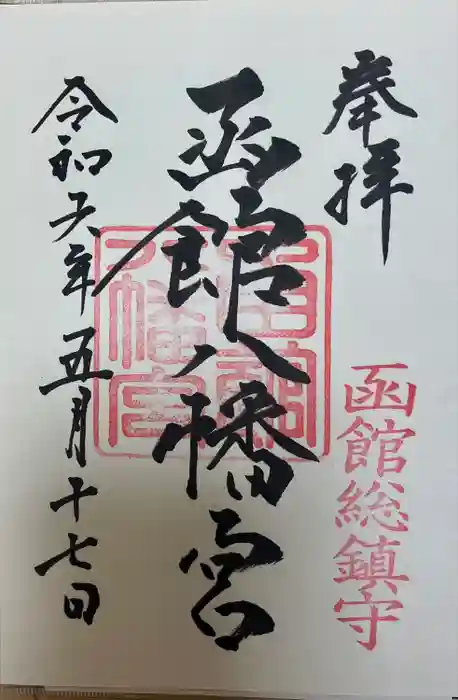 奉拝
函館総鎮守
函館八幡宮
函館八幡宮
令和六年五月十七日